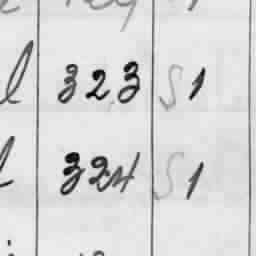 l 323 S 1
l 324 S 1